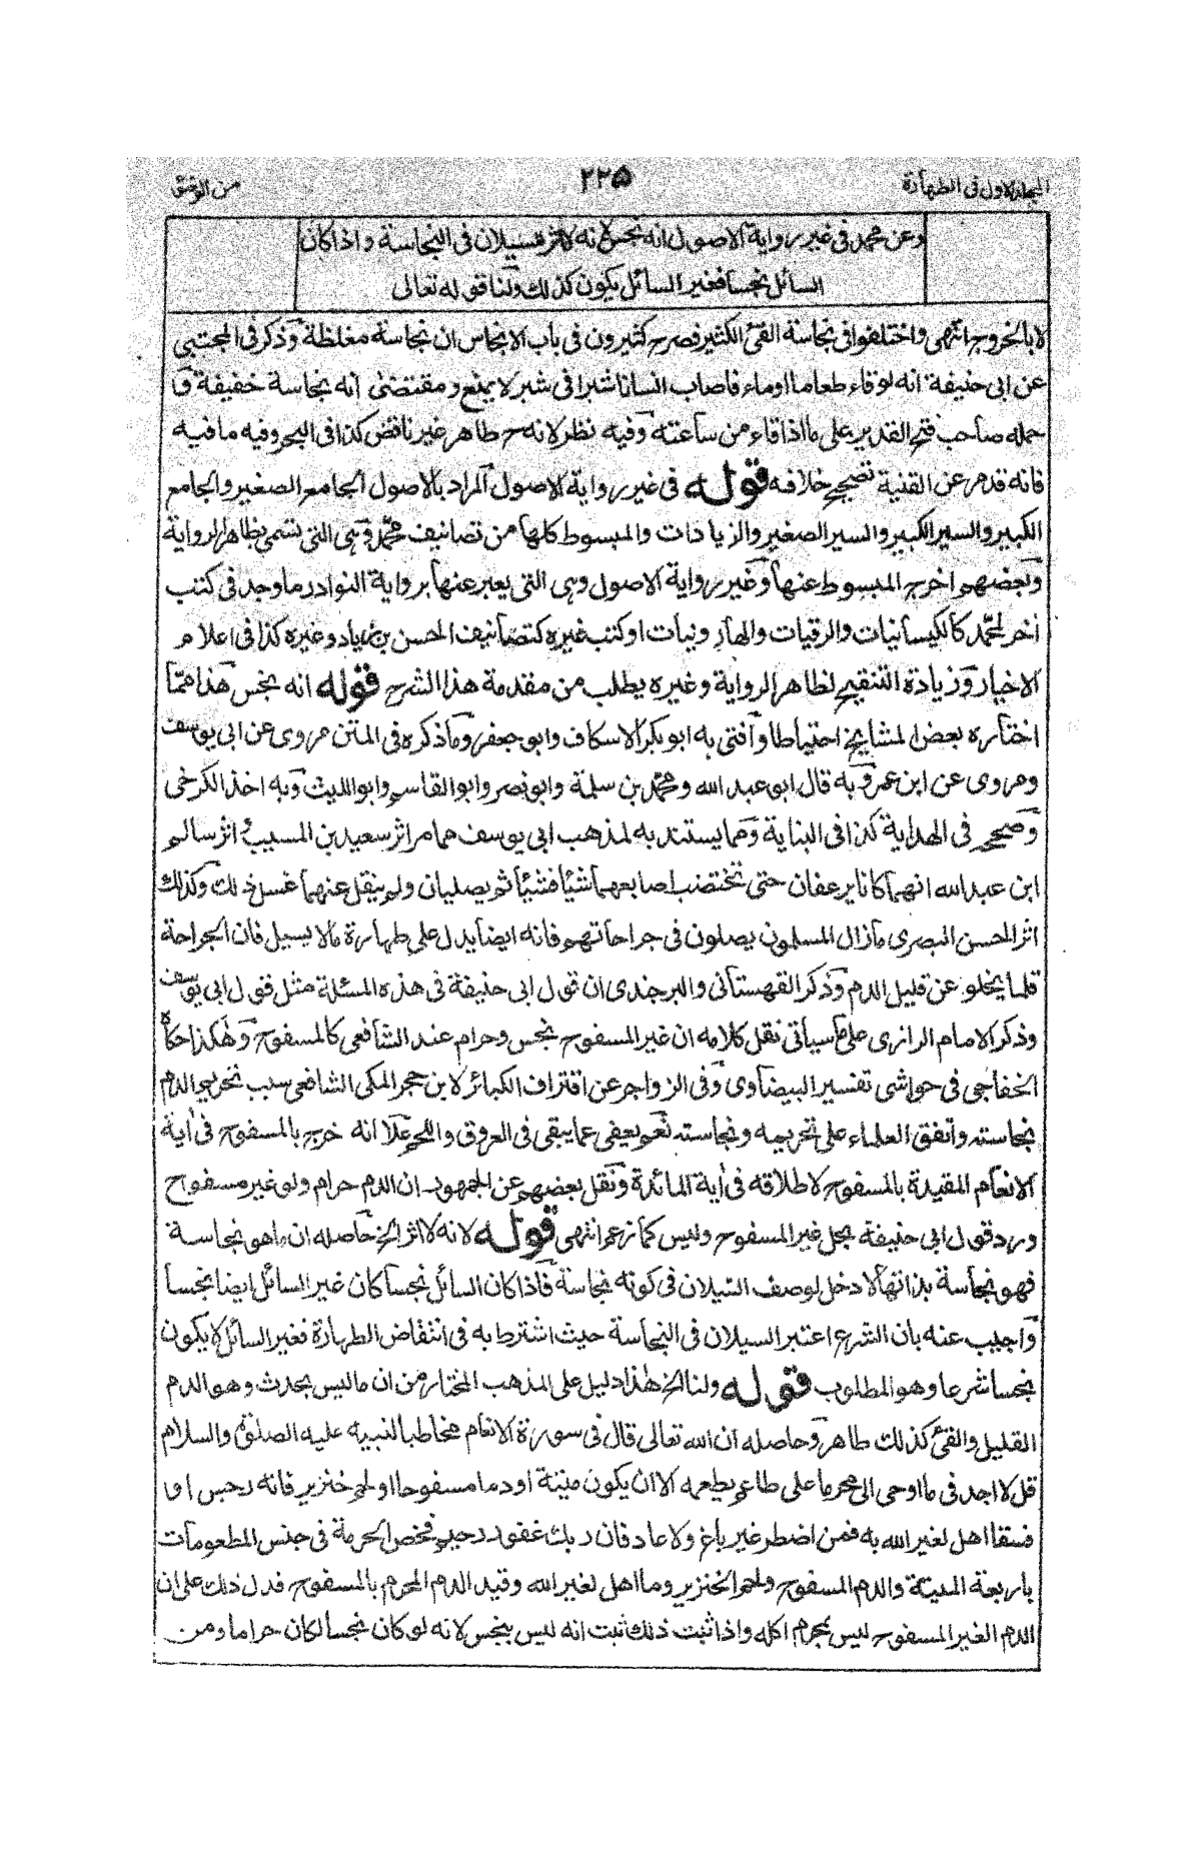 المجلد الاول فى الطهارة
٢٢٥
من الوقف
وعن محمد فى غير رواية الاصول انه نجس لانه لا اثر للسيلان فى النجاسة واذا كان
السائل نجسا فغير السائل يكون كذلك ولنا قوله تعالى
لا بالخروج انتهى واختلفوا فى نجاسة القئ الكثير فصرح كثيرون فى باب الانجاس ان نجاسته مغلظة وذكر فى المجتبى
عن ابى حنيفة انه لو قاء طعاما او ماء فاصاب انسانا شبرا فى شبر لا يمنع ومقتضى انه نجاسة خفيفة و
حمله صاحب فتح القدير على ما اذا قاء من ساعته وفيه نظر لانه ح طاهر غير ناقض كذا فى البحر وفيه ما فيه
فانه قدم عن القنية تصحيح خلافه قوله فى غير رواية الاصول المراد بالاصول الجامع الصغير والجامع
الكبير والسير الكبير والسير الصغير والزيادات والمبسوط كلها من تصانيف محمد وهى التى تسمى بظاهر الرواية
وبعضهم اخرج المبسوط عنها وغير رواية الاصول وهى التى يعبر عنها برواية النوادر ما وجد فى كتب
اخر لمحمد كالكيسانيات والرقيات والهارونيات او كتب غيره كتصانيف الحسن بن زياد وغيره كذا فى اعلام
الاخيار وزيادة التنقيح لظاهر الرواية وغيره يطلب من مقدمة هذا الشرح قوله انه نجس هذا مما
اختاره بعض المشايخ احتياطا وافتى به ابو بكر الاسكاف وابو جعفر وما ذكره فى المتن مروى عن ابى يوسف
ومروى عن ابن عمر وبه قال ابو عبد الله ومحمد بن سلمة وابو نصر وابو القاسم وابو الليث وبه اخذ الكرخى
وصحح فى الهداية كذا فى البناية ومما يستند به لمذهب ابى يوسف ما مر اثر سعيد بن المسيب اثر سالم
ابن عبد الله انهما كانا يرعفان حتى تختضب اصابعهما شيئا فشيئا ثم يصليان ولم ينقل عنهما غسل ذلك وكذلك
اثر الحسن البصرى ما زال المسلمون يصلون فى جراحاتهم فانه ايضا يدل على طهارة ما لا يسيل فان الجراحة
قلما يخلو عن قليل الدم وذكر القهستانى والبرجندى ان قول ابى حنيفة فى هذه المسئلة مثل قول ابى يوسف
وذكر الامام الرازى على ما سيأتى نقل كلامه ان غير المسفوح نجس وحرام عند الشافعى كالمسفوح وهكذا حكاه
الخفاجى فى حواشى تفسير البيضاوى وفى الزواجر عن اقتراف الكبائر لابن حجر المكى الشافعى سبب تحريم الدم
نجاسته واتفق العلماء على تحريمه ونجاسته نعم يعفى عما يبقى فى العروق واللحم علا انه خرج بالمسفوح فى اية
الانعام المقيدة بالمسفوح لاطلاقه فى اية المائدة ونقل بعضهم عن الجمهور ان الدم حرام ولو غير مسفوح
ورد قول ابى حنيفة بحل غير المسفوح وليس كما زعم انتهى قوله لانه لا اثر الخ حاصله ان ما هو نجاسة
فهو نجاسة بذاتها لا دخل لوصف السيلان فى كونه نجاسة فاذا كان السائل نجسا كان غير السائل ايضا نجسا
واجيب عنه بان الشرع اعتبر السيلان فى النجاسة حيث اشترط به فى انتقاض الطهارة فغير السائل لا يكون
نجسا شرعا وهو المطلوب قوله ولنا الخ هذا دليل على المذهب المختار من ان ما ليس بحدث وهو الدم
القليل والقئ كذلك طاهر وحاصله ان الله تعالى قال فى سورة الانعام مخاطبا لنبيه عليه الصلوة والسلام
قل لا اجد فى ما اوحى الى محرما على طاعم يطعمه الا ان يكون ميتة او دما مسفوحا او لحم خنزير فانه رجس او
فسقا اهل لغير الله به فمن اضطر غير باغ ولا عاد فان ربك غفور رحيم فخص الحرمة فى جنس المطعومات
باربعة الميتة والدم المسفوح ولحم الخنزير وما اهل لغير الله وقيد الدم المحرم بالمسفوح فدل ذلك على ان
الدم الغير المسفوح ليس بمحرم اكله واذا ثبت ذلك ثبت انه ليس بنجس لانه لو كان نجسا لكان حراما ومن